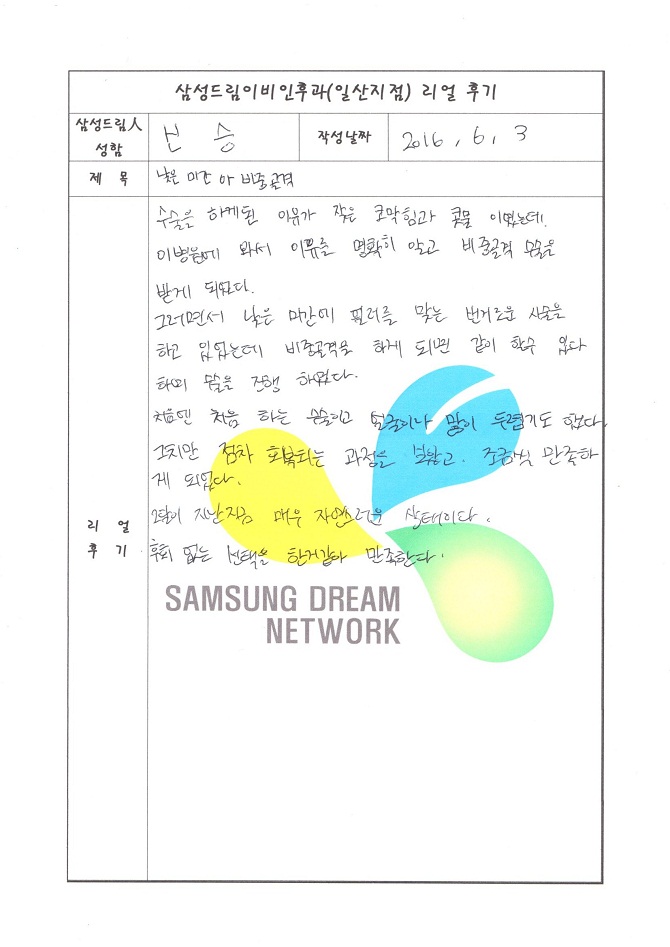 삼성드림이비인후과(일산지점) 리얼 후기
삼성드림人
성함
승
작성날짜
2016, 6, 3
제 목
낮은 미간 아 비중격
수술을 하게된 이유가 잦은 코막힘과 콧물 이였는데.
이병원에 와서 이유를 명확히 알고 비중격 수술을
받게 되었다.
그러면서 낮은 미간에 필러를 맞는 번거로운 시술을
하고 있었는데 비중격을 하게 되면 같이 할수 있다
하여 수술을 진행 하였다.
처음엔 처음 하는 수술이고 얼굴이나 많이 두렵기도 했다.
그치만 점차 회복되는 과정을 보았고. 조금씩 만족하
게 되었다.
2달이 지난지금 매우 자연스러운 상태이다.
후회 없는 선택을 한거같아 만족한다.
리 얼
후 기
SAMSUNG DREAM
NETWORK